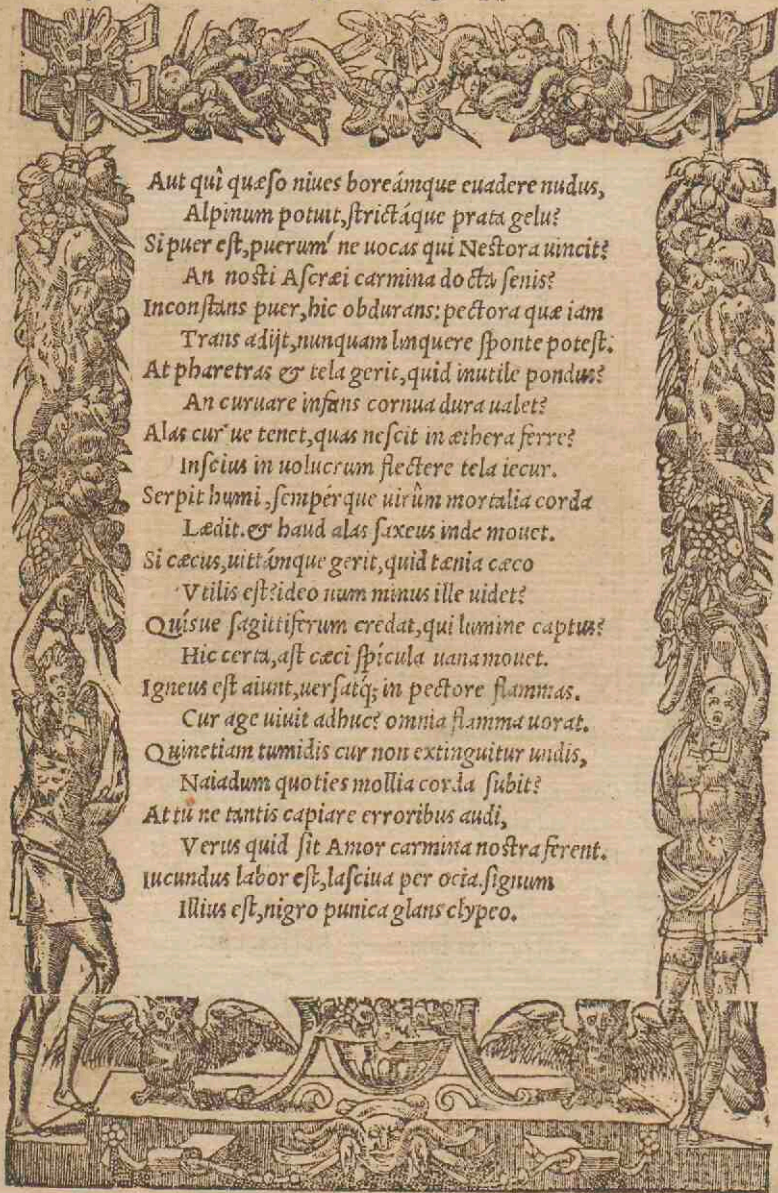 Aut quî quæso niues boreámque euadere nudus,
Alpinum potuit, strictáque prata gelu?
Si puer est, puerum' ne uocas qui Nestora uincit?
An nosti Ascræi carmina docta senis?
Inconstans puer, hic obdurans: pectora quæ iam
Trans adijt, nunquam linquere sponte potest.
At pharetras & tela gerit, quid inutile pondus?
An curuare infans cornua dura ualet?
Alas cur' ue tenet, quas nescit in æthera ferre?
Inscius in uolucrum flectere tela iecur.
Serpit humi, sempérque uirûm mortalia corda
Lædit. & haud alas saxeus inde mouet.
Si cæcus, uittámque gerit, quid tænia cæco
Vtilis est? ideo num minus ille uidet?
Quísue sagittiferum credat, qui lumine captus?
Hic certa, ast cæci spícula uana mouet.
Igneus est aiunt, uersatq; in pectore flammas.
Cur age uiuit adhuc? omnia flamma uorat.
Quinetiam tumidis cur non extinguitur undis,
Naiadum quoties mollia corda subit?
At tú ne tantis capiare erroribus audi,
Verus quid sit Amor carmina nostra ferent.
Iucundus labor est, lasciua per ocia. signum
Illius est, nigro punica glans clypeo.